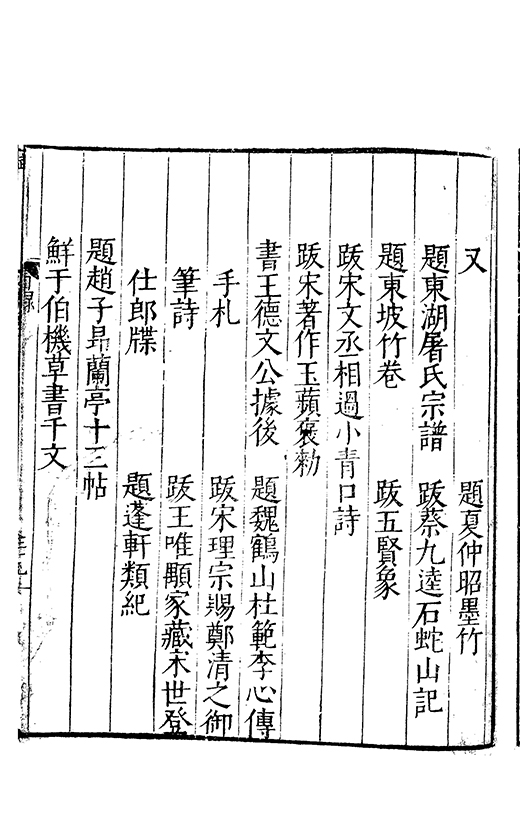 又　題夏仲昭墨竹
題東湖屠氏宗譜　跋蔡九逵石蛇山記
題東坡竹卷　跋五賢象
跋宋文丞相過小青口詩
跋宋著作王蘋褒勑
書王德文公據後　題魏鶴山杜範李心傳
手札　跋宋理宗賜鄭清之御
筆詩　跋王唯顒家藏宋世登
仕郎牒　題蓬軒類紀
題趙子昂蘭亭十三帖
鮮于伯機草書千文